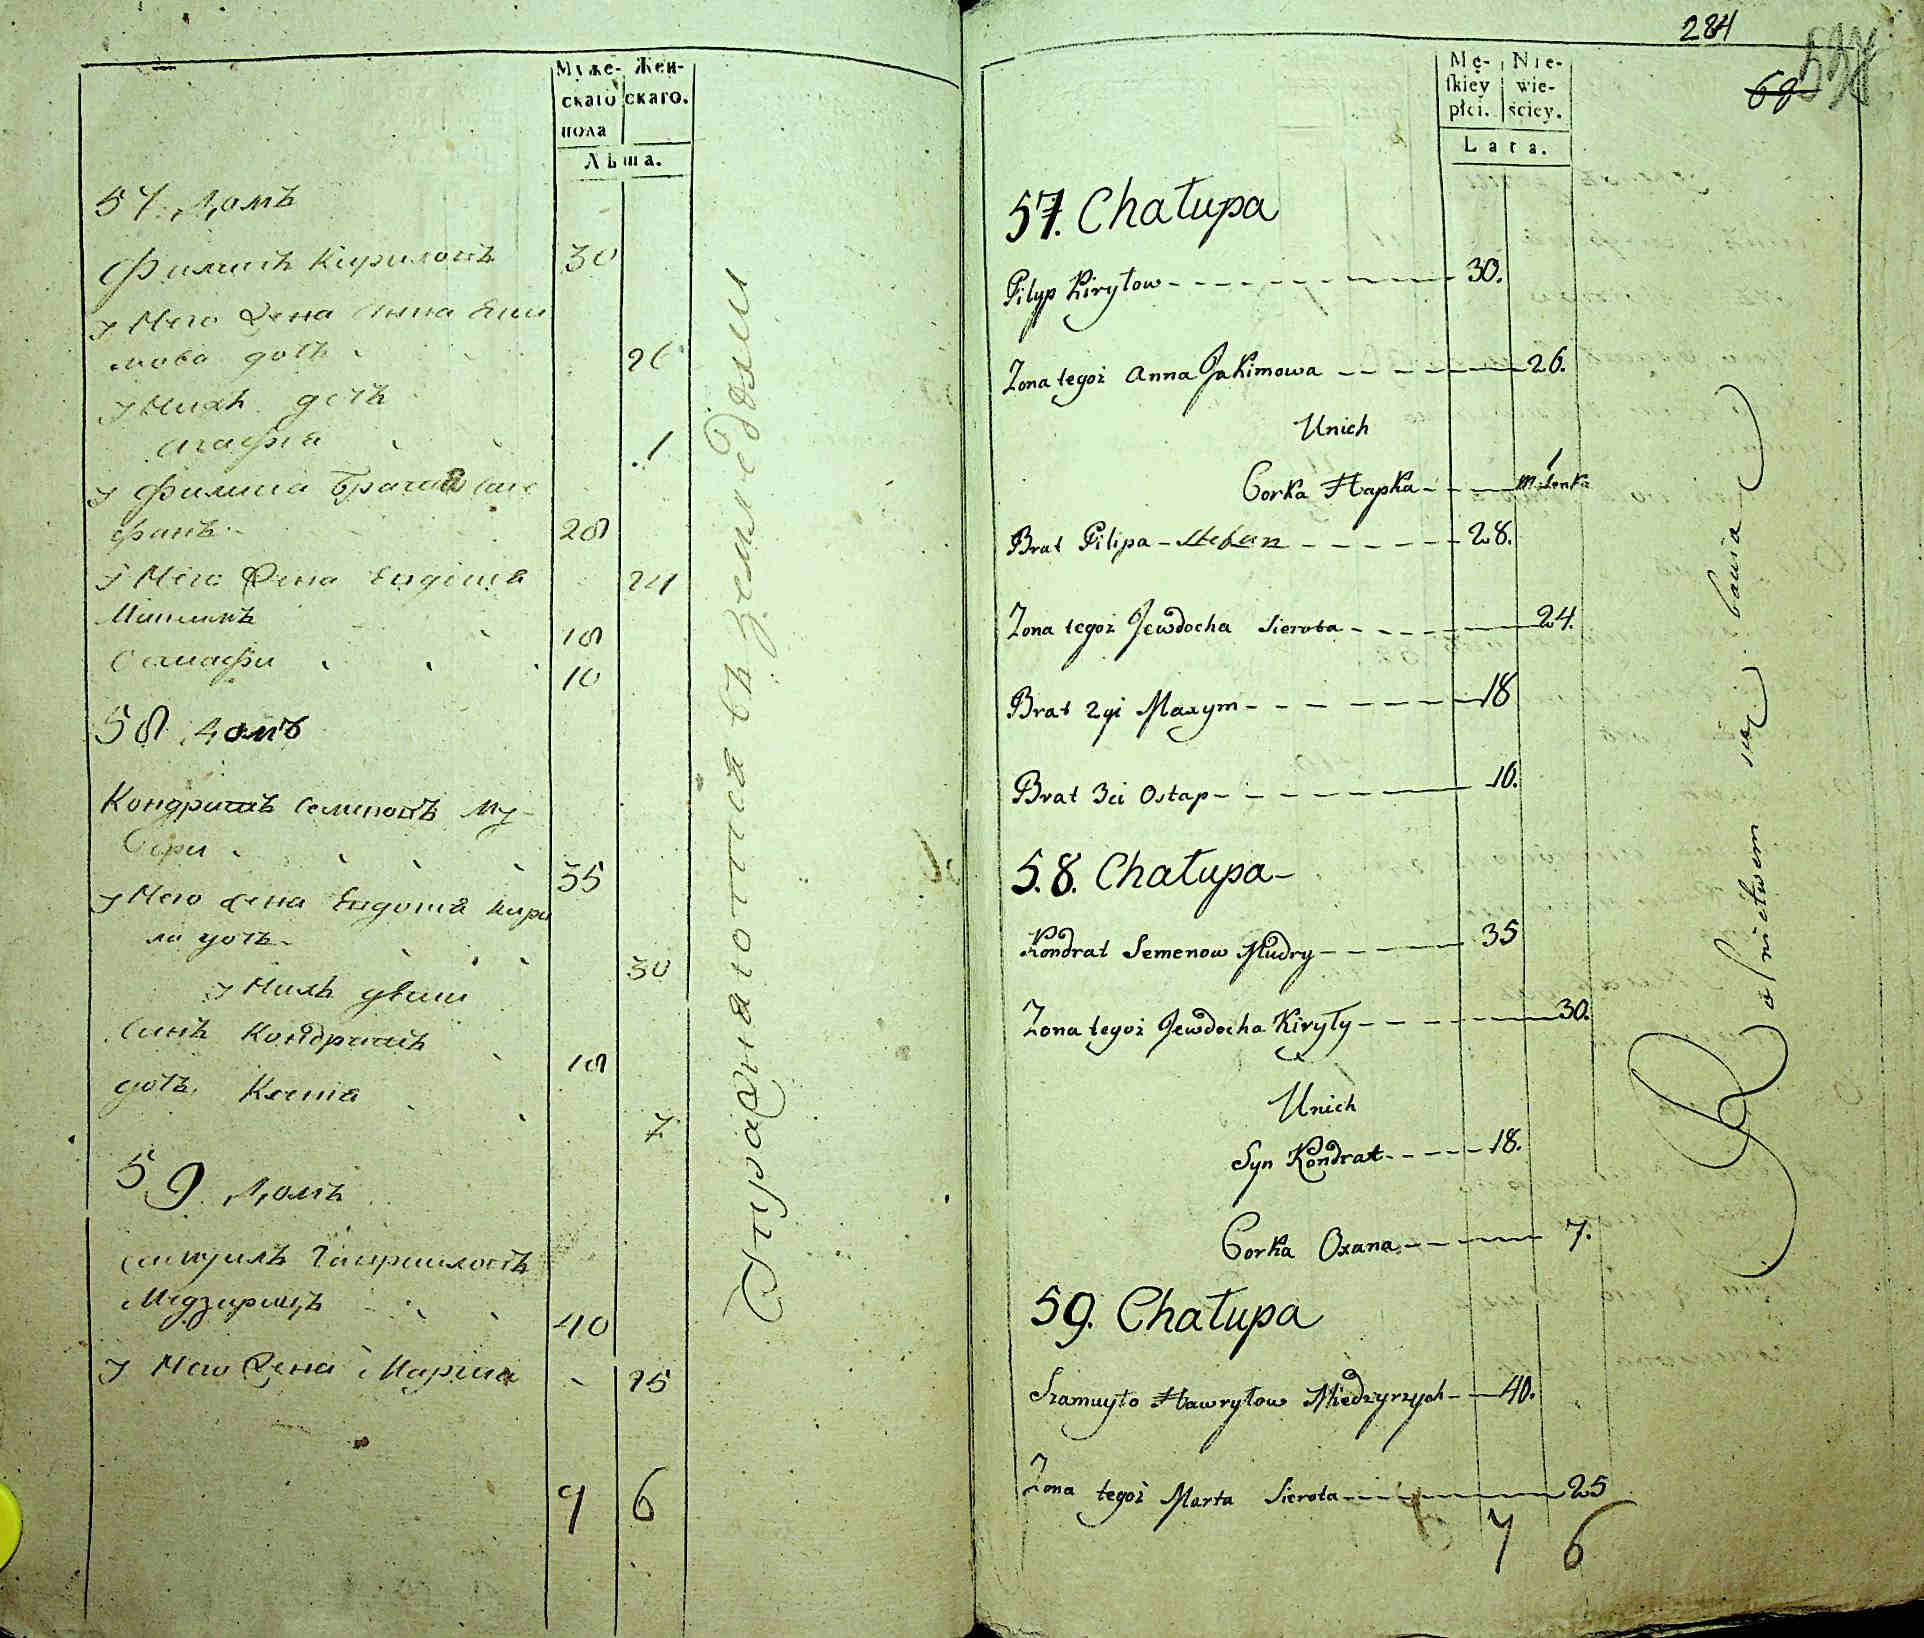 Муже- Жен-
скаго скаго.
пола
Лѣта.
57 Домъ
Филипъ Кириловъ 30
У Него Жена Анна Яки
мова дочь 26
У Нихъ дочь
Агафия 1
У Филипа братъ Сте
фанъ 28
У Него Жена Евдокия 24
Максимъ 18
Остафи 10
58 Домъ
Кондратъ Семеновъ Му-
дри 35
У Него Жена Евдокия Кири
ла дочь 30
У Нихъ дѣти
Синъ Кондратъ 18
дочь Ксенia 7
59 Домъ
Самуилъ Гавриловъ
Медзирицъ 40
У Него Жена Марта 25
7 6
Упражняются въ земледелии
284
537
68
Mę- Nie-
skiey wie-
płci. ściey.
Lata.
57. Chałupa
Filyp Kiryłow 30.
Zona tegoż Anna Jakimowa 26.
Unich
Corka Hapka 1
Brat Filipa Stefan 28.
Zona tegoż Jewdocha Sierota 24.
Brat 2gi Maxym 18
Brat 3ci Ostap 10.
5.8. Chałupa
Kondrat Semenow Mudry 35
Zona tegoż Jewdocha Kiryły 30.
Unich
Syn Kondrat 18.
Corka Oxana 7.
59. Chałupa
Szamuyło Hawryłow Miedzyrzych 40.
Zona tegoż Marta Sierota 25
7 6
Rolnictwem się bawia